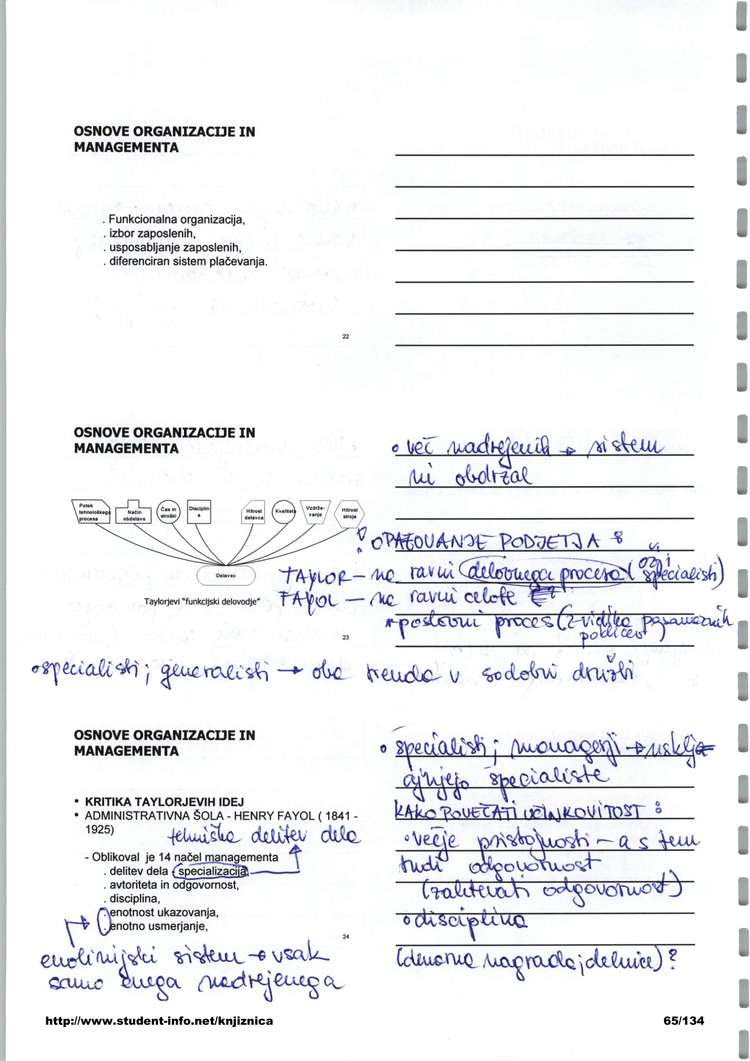 OSNOVE ORGANIZACIJE IN
MANAGEMENTA
. Funkcionalna organizacija,
. izbor zaposlenih,
. usposabljanje zaposlenih,
. diferenciran sistem plačevanja.
22
OSNOVE ORGANIZACIJE IN
MANAGEMENTA
Potek
tehnološkega
procesa
Način
obdelave
Čas in
stroški
Disciplin
a
Hitrost
delavca
Kvaliteta
Vzdrže-
vanje
Hitrost
stroja
Delavec
Taylorjevi "funkcijski delovodje"
23
• več nadrejenih → sistem
ni obdržal
OPAZOVANJE PODJETJA :
TAYLOR – na ravni delovnega procesa (ozki specialisti)
FAYOL – na ravni celote
poslovni proces (z vidika posameznih
poklicev)
• specialisti; generalisti → oba trenda v sodobni družbi
OSNOVE ORGANIZACIJE IN
MANAGEMENTA
• KRITIKA TAYLORJEVIH IDEJ
• ADMINISTRATIVNA ŠOLA - HENRY FAYOL ( 1841 -
1925)
tehniška delitev dela
- Oblikoval je 14 načel managementa
. delitev dela (specializacija)
. avtoriteta in odgovornost,
. disciplina,
. enotnost ukazovanja,
. enotno usmerjanje,
24
enolinijski sistem → vsak
samo enega nadrejenega
• specialisti; managerji → usklja
ajnjejo specialiste
KAKO POVEČATI UČINKOVITOST :
• večje pristojnosti – a s tem
tudi odgovornost
(zahtevati odgovornost)
• disciplina
(denarna nagrada; delnice) ?
http://www.student-info.net/knjiznica
65/134